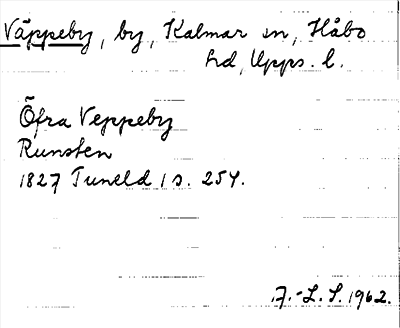 Väppeby, by, Kalmar sn, Håbo
hd, Upps. l.
Öfra Veppeby
Runsten
1827 Tuneld 1 s. 254.
A.-L. S. 1962.